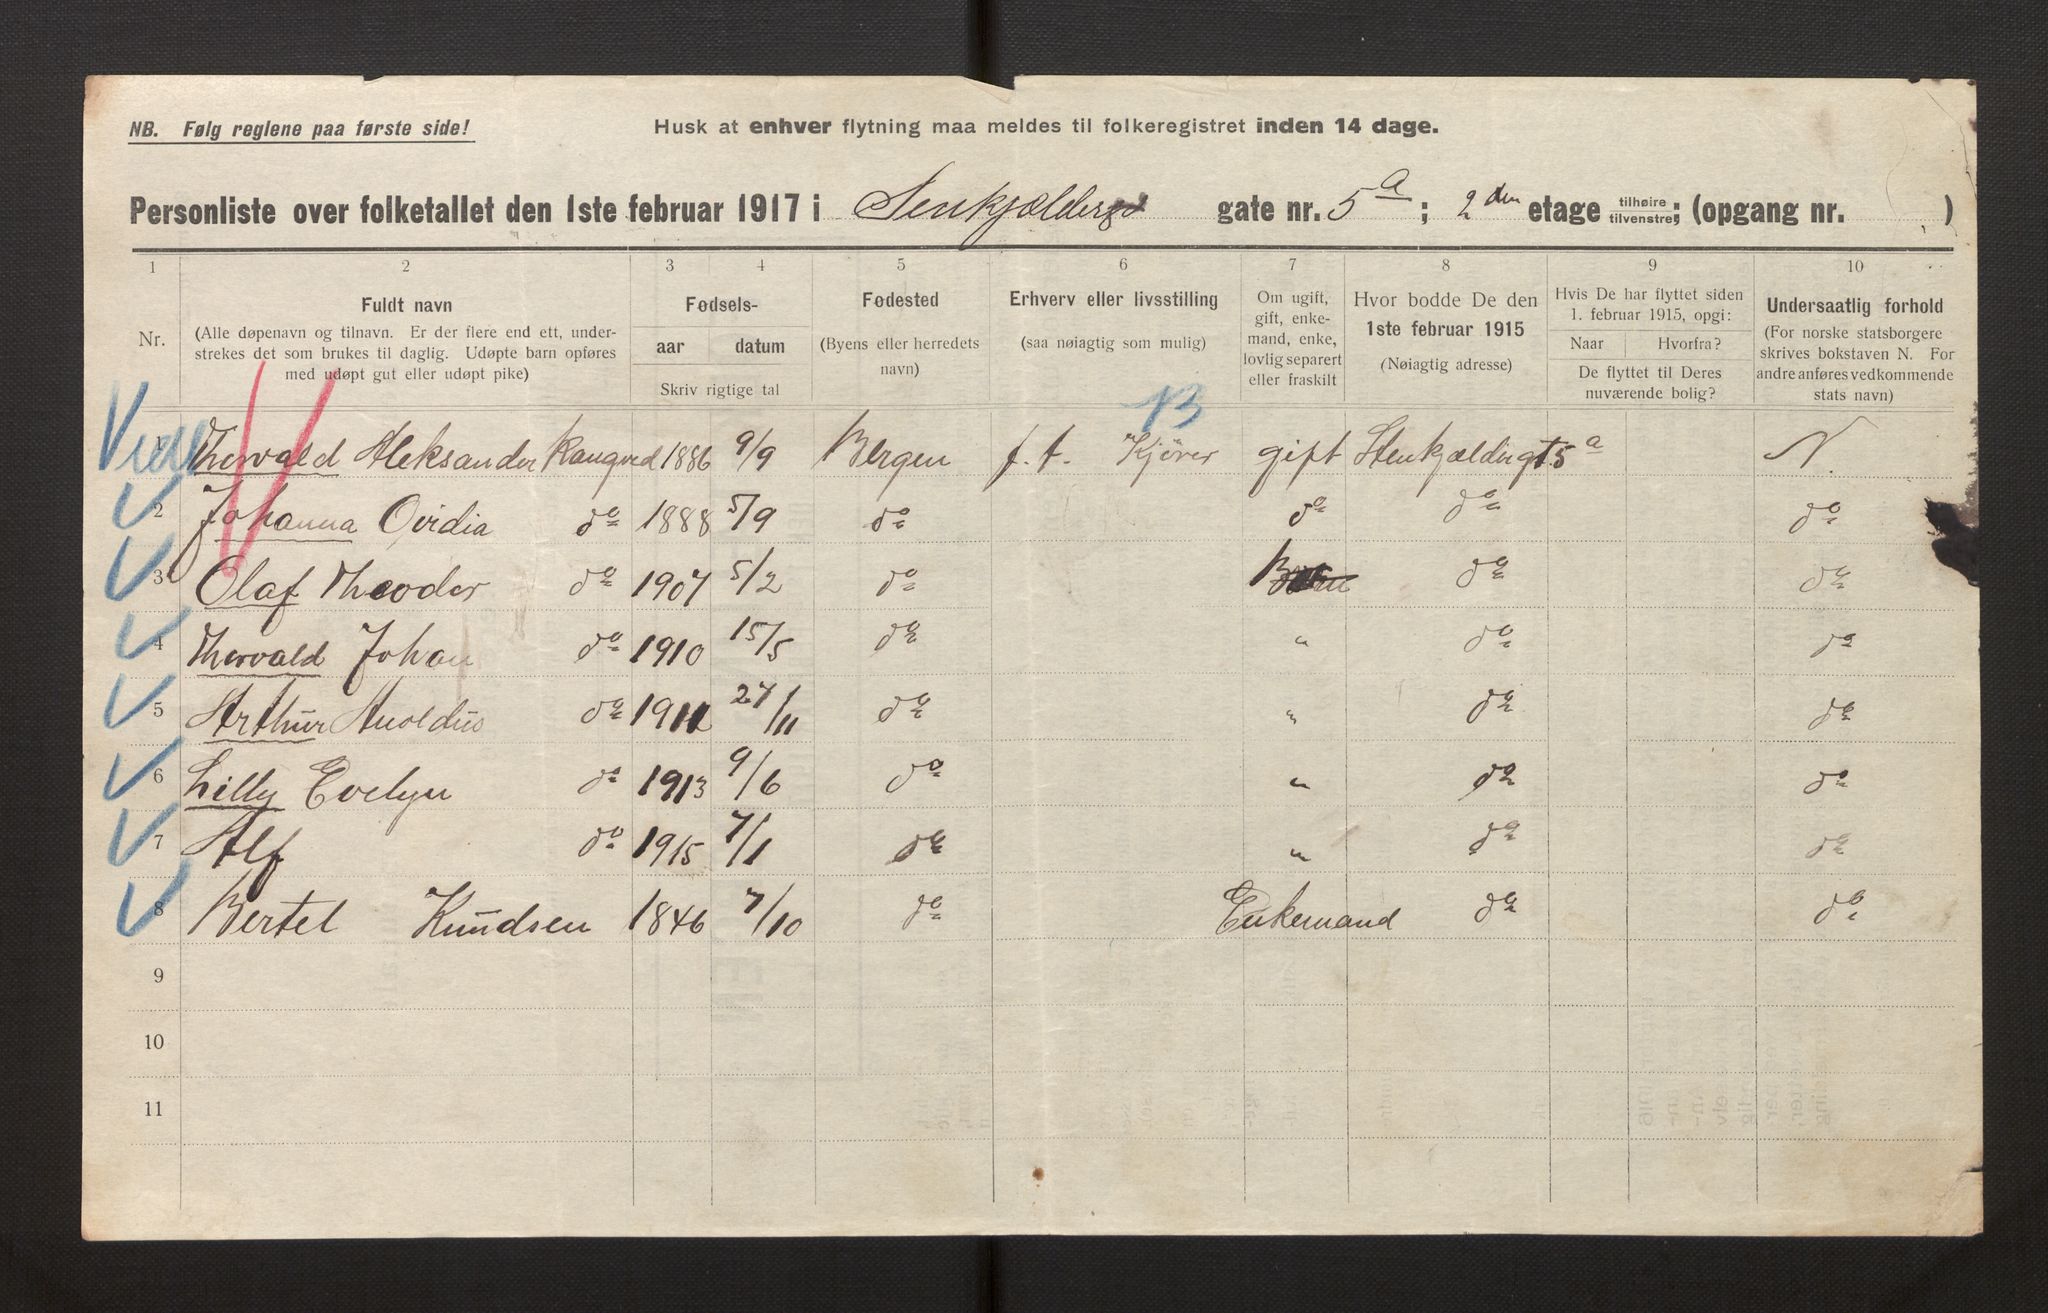 NB. Følg reglene paa første side!
Husk at enhver flytning maa meldes til folkeregistret inden 14 dage.
Personliste over folketallet den 1ste februar 1917 i Stenkjælderg gate nr. 5 a ; 2 den etage tilhøire tilvenstre ; (opgang nr. )
1 2 3 4 5 6 7 8 9 10
Nr.
Fuldt navn
(Alle døpenavn og tilnavn. Er der flere end ett, under-
strekes det som brukes til daglig. Udøpte barn opføres
med udøpt gut eller udøpt pike)
Fødsels-
aar datum
Skriv rigtige tal
Fødested
(Byens eller herredets
navn)
Erhverv eller livsstilling
(saa nøiagtig som mulig)
Om ugift,
gift, enke-
mand, enke,
lovlig separert
eller fraskilt
Hvor bodde De den
1ste februar 1915
(Nøiagtig adresse)
Hvis De har flyttet siden
1. februar 1915, opgi:
Naar Hvorfra?
De flyttet til Deres
nuværende bolig?
Undersaatlig forhold
(For norske statsborgere
skrives bokstaven N. For
andre anføres vedkommende
stats navn)
13
1 Thorvald Aleksander 1886 9/9 Bergen f. t. Kjører gift Stenkjældergt 5 a N.
2 Johanna Ovidia do 1888 5/9 do do do do
3 Olaf Theodor do 1907 5/2 do do do
4 Thorvald Johan do 1910 15/5 do " do do
5 Arthur Anoldus do 27/11 do " do do
6 Lilly Evelyn do 1913 9/6 do " do do
7 Alf do 1915 7/1 do " do do
8 Bertel Knudsen 1846 7/10 do Enkemand do do
9
10
11